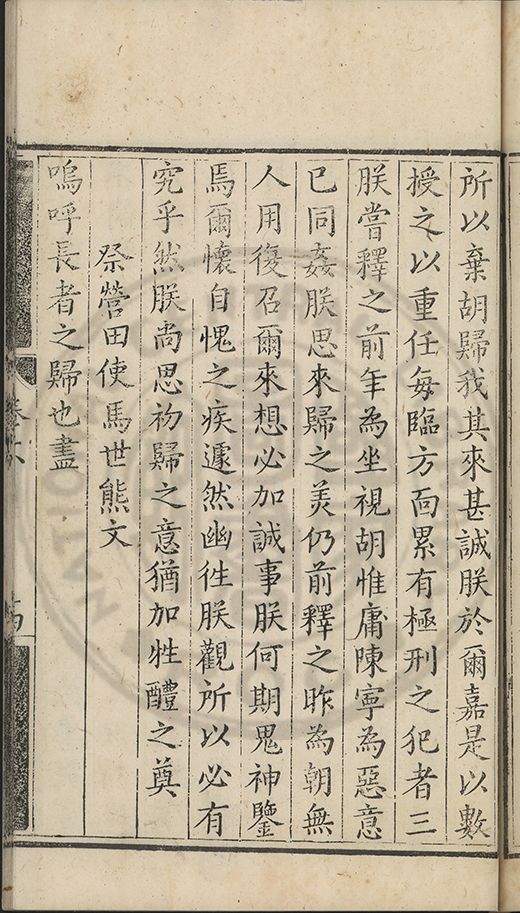 所以棄胡歸我其來甚誠朕於爾嘉是以數
授之以重任每臨方面累有極刑之犯者三
朕嘗釋之前年為坐視胡惟庸陳寧為惡意
已同姦朕思來歸之美仍前釋之昨為朝無
人用復召爾來想必加誠事朕何期鬼神鑒
焉爾懷自愧之疾遽然幽徃朕觀所以必有
究乎然朕尚思初歸之意猶加牲醴之奠
祭營田使馬世熊文
嗚呼長者之歸也盡